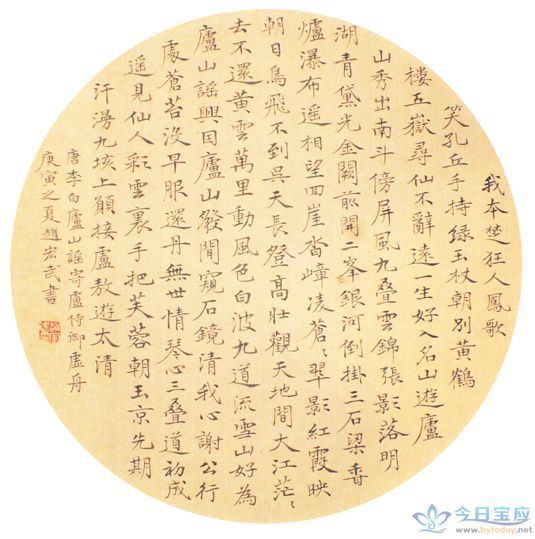 我本楚狂人鳳歌
笑孔丘手持綠玉杖朝別黃鶴
樓五嶽尋仙不辭遠一生好入名山遊廬
山秀出南斗傍屏風九叠雲錦張影落明
湖青黛光金闕前開二峯銀河倒掛三石梁香
爐瀑布遙相望回崖沓嶂凌蒼〻翠影紅霞映
朝日鳥飛不到吳天長登高壯觀天地間大江茫〻
去不還黃雲萬里動風色白波九道流雪山好為
廬山謠興因廬山發閒窺石鏡清我心謝公行
處蒼苔沒早服還丹無世情琴心三叠道初成
遙見仙人彩雲裏手把芙蓉朝玉京先期
汗漫九垓上願接盧敖遊太清
唐李白廬山謠寄盧侍御虛舟
庚寅之夏趙宏武書
今日宝应
www.bytoday.net